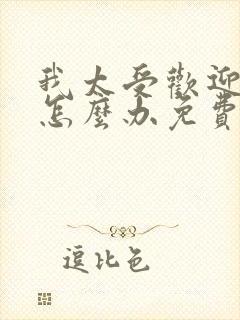 我太受歡迎
怎麼办免費
逗比色